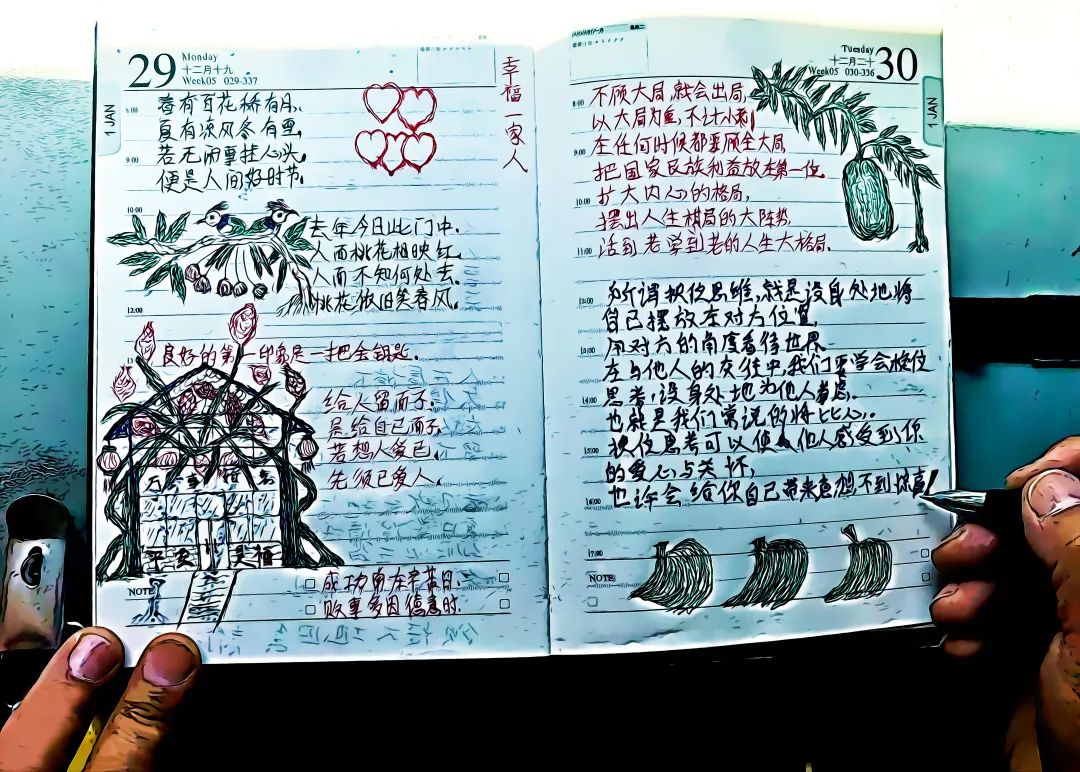 29
Monday
十二月十九
Week05 029-337
1 JAN
8:00
春有百花秋有月,
夏有凉风冬有雪,
9:00
若无闲事挂心头,
便是人间好时节,
幸福一家人
10:00
去年今日此门中,
人面桃花相映红,
人面不知何处去,
桃花依旧笑春风。
12:00
良好的第一印象是一把金钥匙.
给人留面子,
是给自己面子,
若想人爱已,
先须已爱人.
平安 幸福
NOTE
成功常在辛苦日,
败事多因得意时.
Tuesday
30
十二月二十
Week05 030-336
1 JAN
8:00
不顾大局,就会出局,
以大局为重,不计小利
9:00
在任何时候都要顾全大局
把国家民族利益放在第一位.
10:00
扩大内心的格局,
摆出人生棋局的大阵势
11:00
活到老学到老的人生大格局.
12:00
所谓换位思维,就是设身处地,将
自己摆放在对方位置,
用对方的角度看待世界
在与他人的交往中,我们要学会换位
14:00
思考,设身处地为他人着想.
也就是我们常说的将比心,
15:00
换位思考可以使他人感受到你
的爱心与关怀,
16:00
也许会给你自己带来意想不到惊喜!
17:00
NOTE